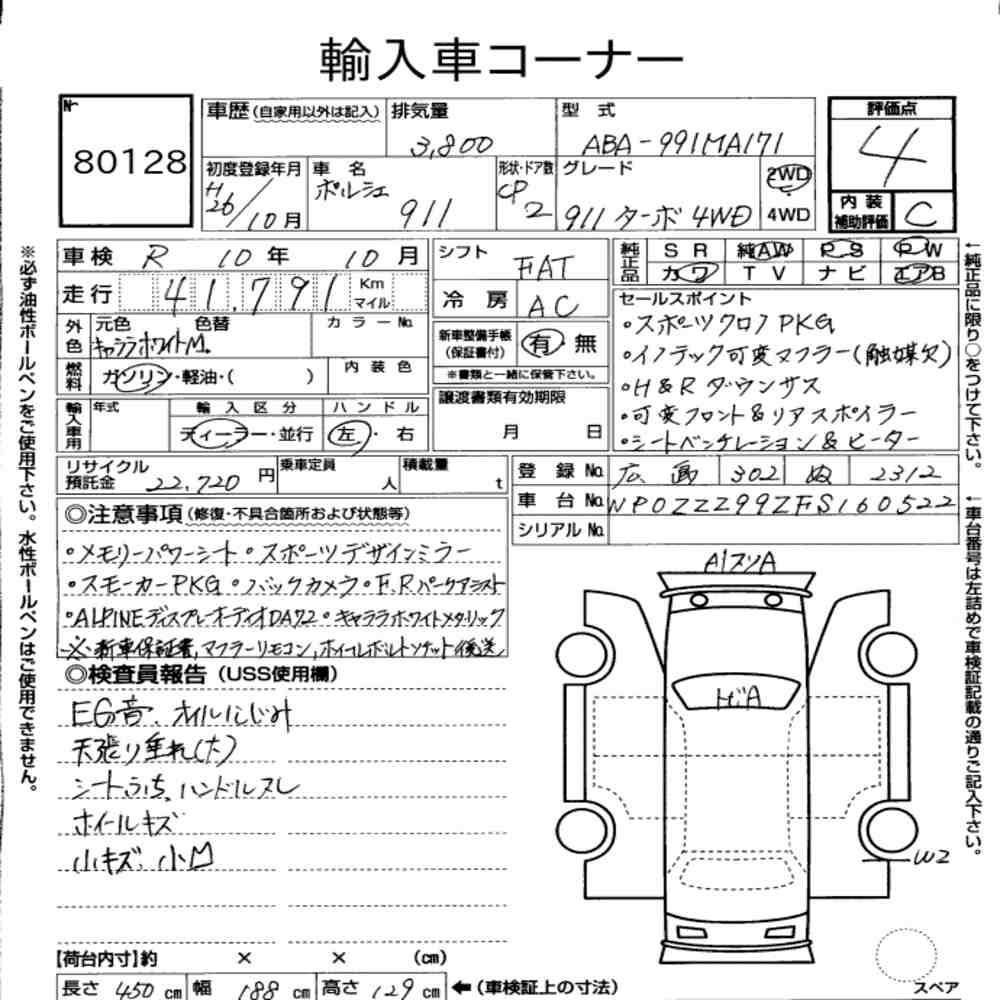 輸入車コーナー
№
80128
車歴(自家用以外は記入)
排気量
3,800
型 式
ABA-991MA171
評価点
4
初度登録年月
H26/10月
車 名
ポルシェ
911
形状・ドア数
CP
2
グレード
911 ターボ 4WD
2WD
4WD
内装補助評価
C
車検 R 10年 10月
走行 41,791 Km マイル
外色
元色 色替
キャララホワイトM.
カラーNo.
燃料
ガソリン・軽油・( )
内装色
輸入車用
年式
輸入区分
ディーラー・並行
ハンドル
左・右
シフト
FAT
冷房
AC
新車整備手帳(保証書付)
有・無
※書類と一緒に保管下さい。
譲渡書類有効期限
月 日
純正品
SR 純AW PS PW
カワ TV ナビ エアB
セールスポイント
・スポーツクロノPKG
・イノテック可変マフラー(触媒欠)
・H&Rダウンサス
・可変フロント&リアスポイラー
・シートベンチレーション&ヒーター
リサイクル預託金 22,720円
乗車定員 人
積載量 t
登録No. 広島 302 ぬ 2312
車台No. WP0ZZZ99ZFS160522
シリアルNo.
◎注意事項(修復・不具合箇所および状態等)
・メモリーパワーシート・スポーツデザインミラー
・スモーカーPKG・バックカメラ・F.Rパークアシスト
・ALPINEディスプレーオーディオDA72・キャララホワイトメタリック
※新車保証書,マフラーリモコン,ホイールボルトソケット後送
◎検査員報告(USS使用欄)
EG音、オイルにじみ
天張り垂れ(大)
シートうち、ハンドルスレ
ホイールキズ
小キズ、小凹
A1スリA
トビA
W2
【荷台内寸】約 × × (cm)
長さ 450 cm 幅 188 cm 高さ 129 cm ←(車検証上の寸法)
スペア
※必ず油性ボールペンをご使用下さい。水性ボールペンはご使用できません。
←純正品に限り○をつけて下さい。
←車台番号は左詰めで車検証記載の通りご記入下さい。